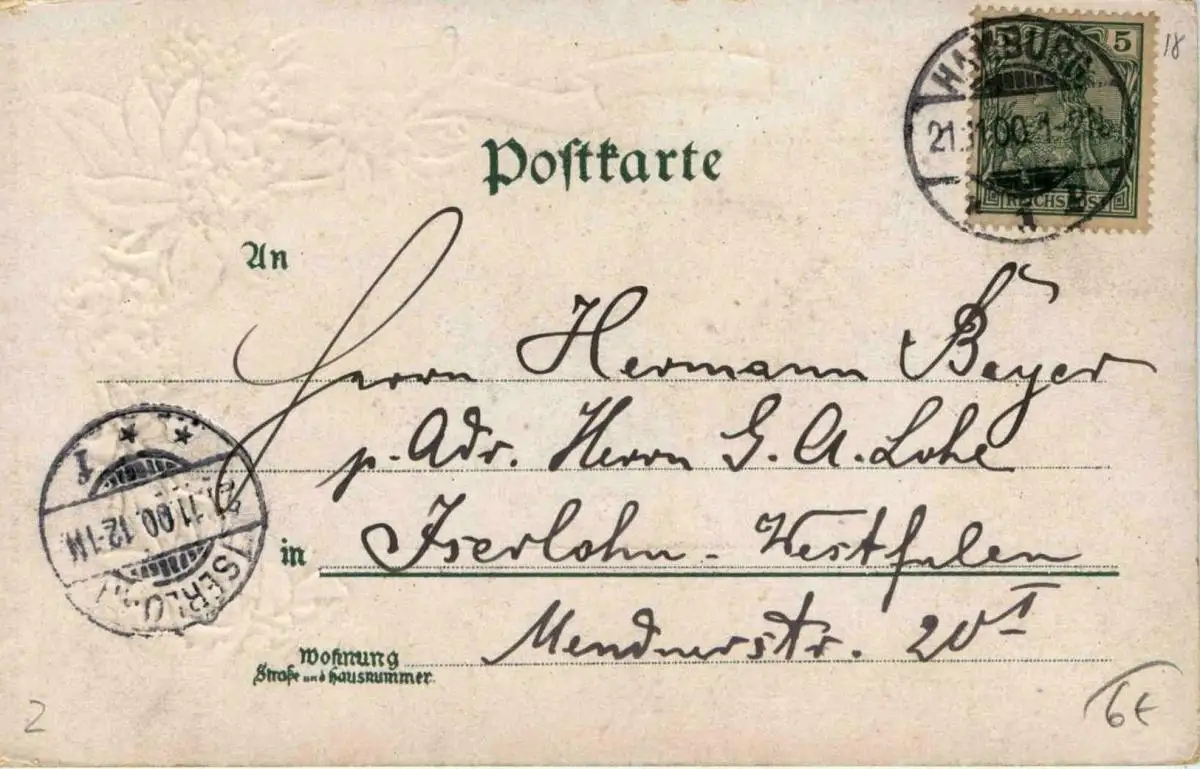 18
5 5
REICHSPOST
HAMBURG
21.11.00. 1-2N.
* 1 g
Postkarte
An
Herrn Hermann Beyer
p. Adr. Herrn G. A. Lohe
in Iserlohn - Westfalen
Mendnerstr. 20 I
Wohnung
Straße und Hausnummer.
ISERLOHN
11.00. 12-1N.
* * 1
2
6€